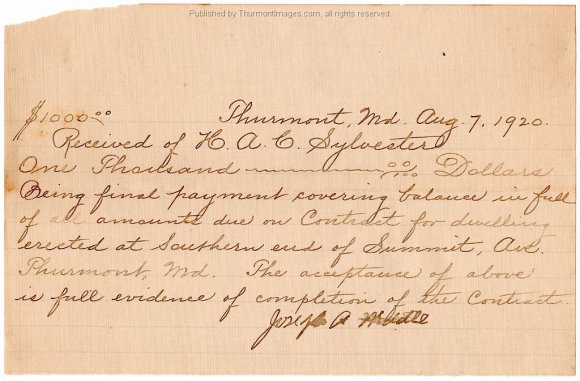 Published by ThurmontImages.com, all rights reserved.
$1000 00 Thurmont, Md. Aug. 7, 1920.
Received of H. A. C. Sylvester
One Thousand 00 Dollars
Being final payment covering balance in full
of all amounts due on Contract for dwelling
erected at Southern end of Summit, Ave.
Thurmont, Md. The acceptance of above
is full evidence of completion of the Contract.
Joseph A